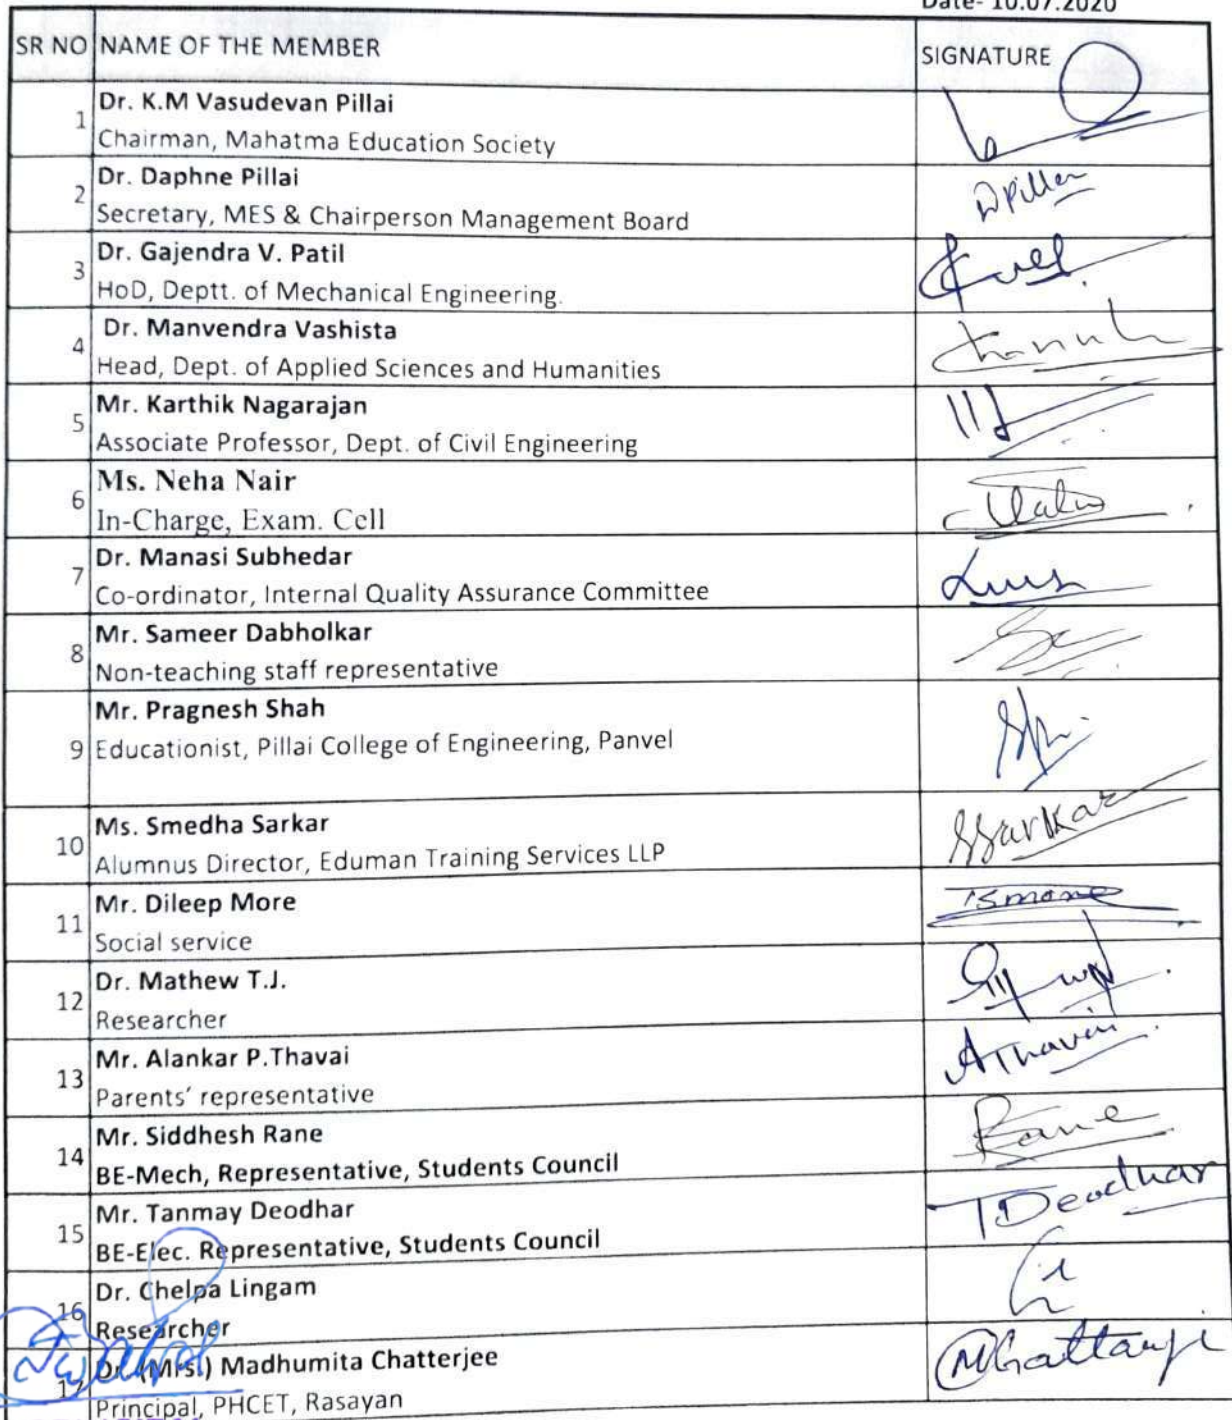 Date- 10.07.2020
SR NO NAME OF THE MEMBER SIGNATURE
1 Dr. K.M Vasudevan Pillai
Chairman, Mahatma Education Society
2 Dr. Daphne Pillai
Secretary, MES & Chairperson Management Board
DPillai
3 Dr. Gajendra V. Patil
HoD, Deptt. of Mechanical Engineering.
4 Dr. Manvendra Vashista
Head, Dept. of Applied Sciences and Humanities
5 Mr. Karthik Nagarajan
Associate Professor, Dept. of Civil Engineering
6 Ms. Neha Nair
In-Charge, Exam. Cell
7 Dr. Manasi Subhedar
Co-ordinator, Internal Quality Assurance Committee
8 Mr. Sameer Dabholkar
Non-teaching staff representative
Mr. Pragnesh Shah
9 Educationist, Pillai College of Engineering, Panvel
10 Ms. Smedha Sarkar
Alumnus Director, Eduman Training Services LLP
SSarkar
11 Mr. Dileep More
Social service
12 Dr. Mathew T.J.
Researcher
13 Mr. Alankar P.Thavai
Parents' representative
AThavai
14 Mr. Siddhesh Rane
BE-Mech, Representative, Students Council
Rane
15 Mr. Tanmay Deodhar
BE-Elec. Representative, Students Council
TDeodhar
16 Dr. Chelpa Lingam
Researcher
17 Dr. (Mrs.) Madhumita Chatterjee
Principal, PHCET, Rasayan
MChatterji